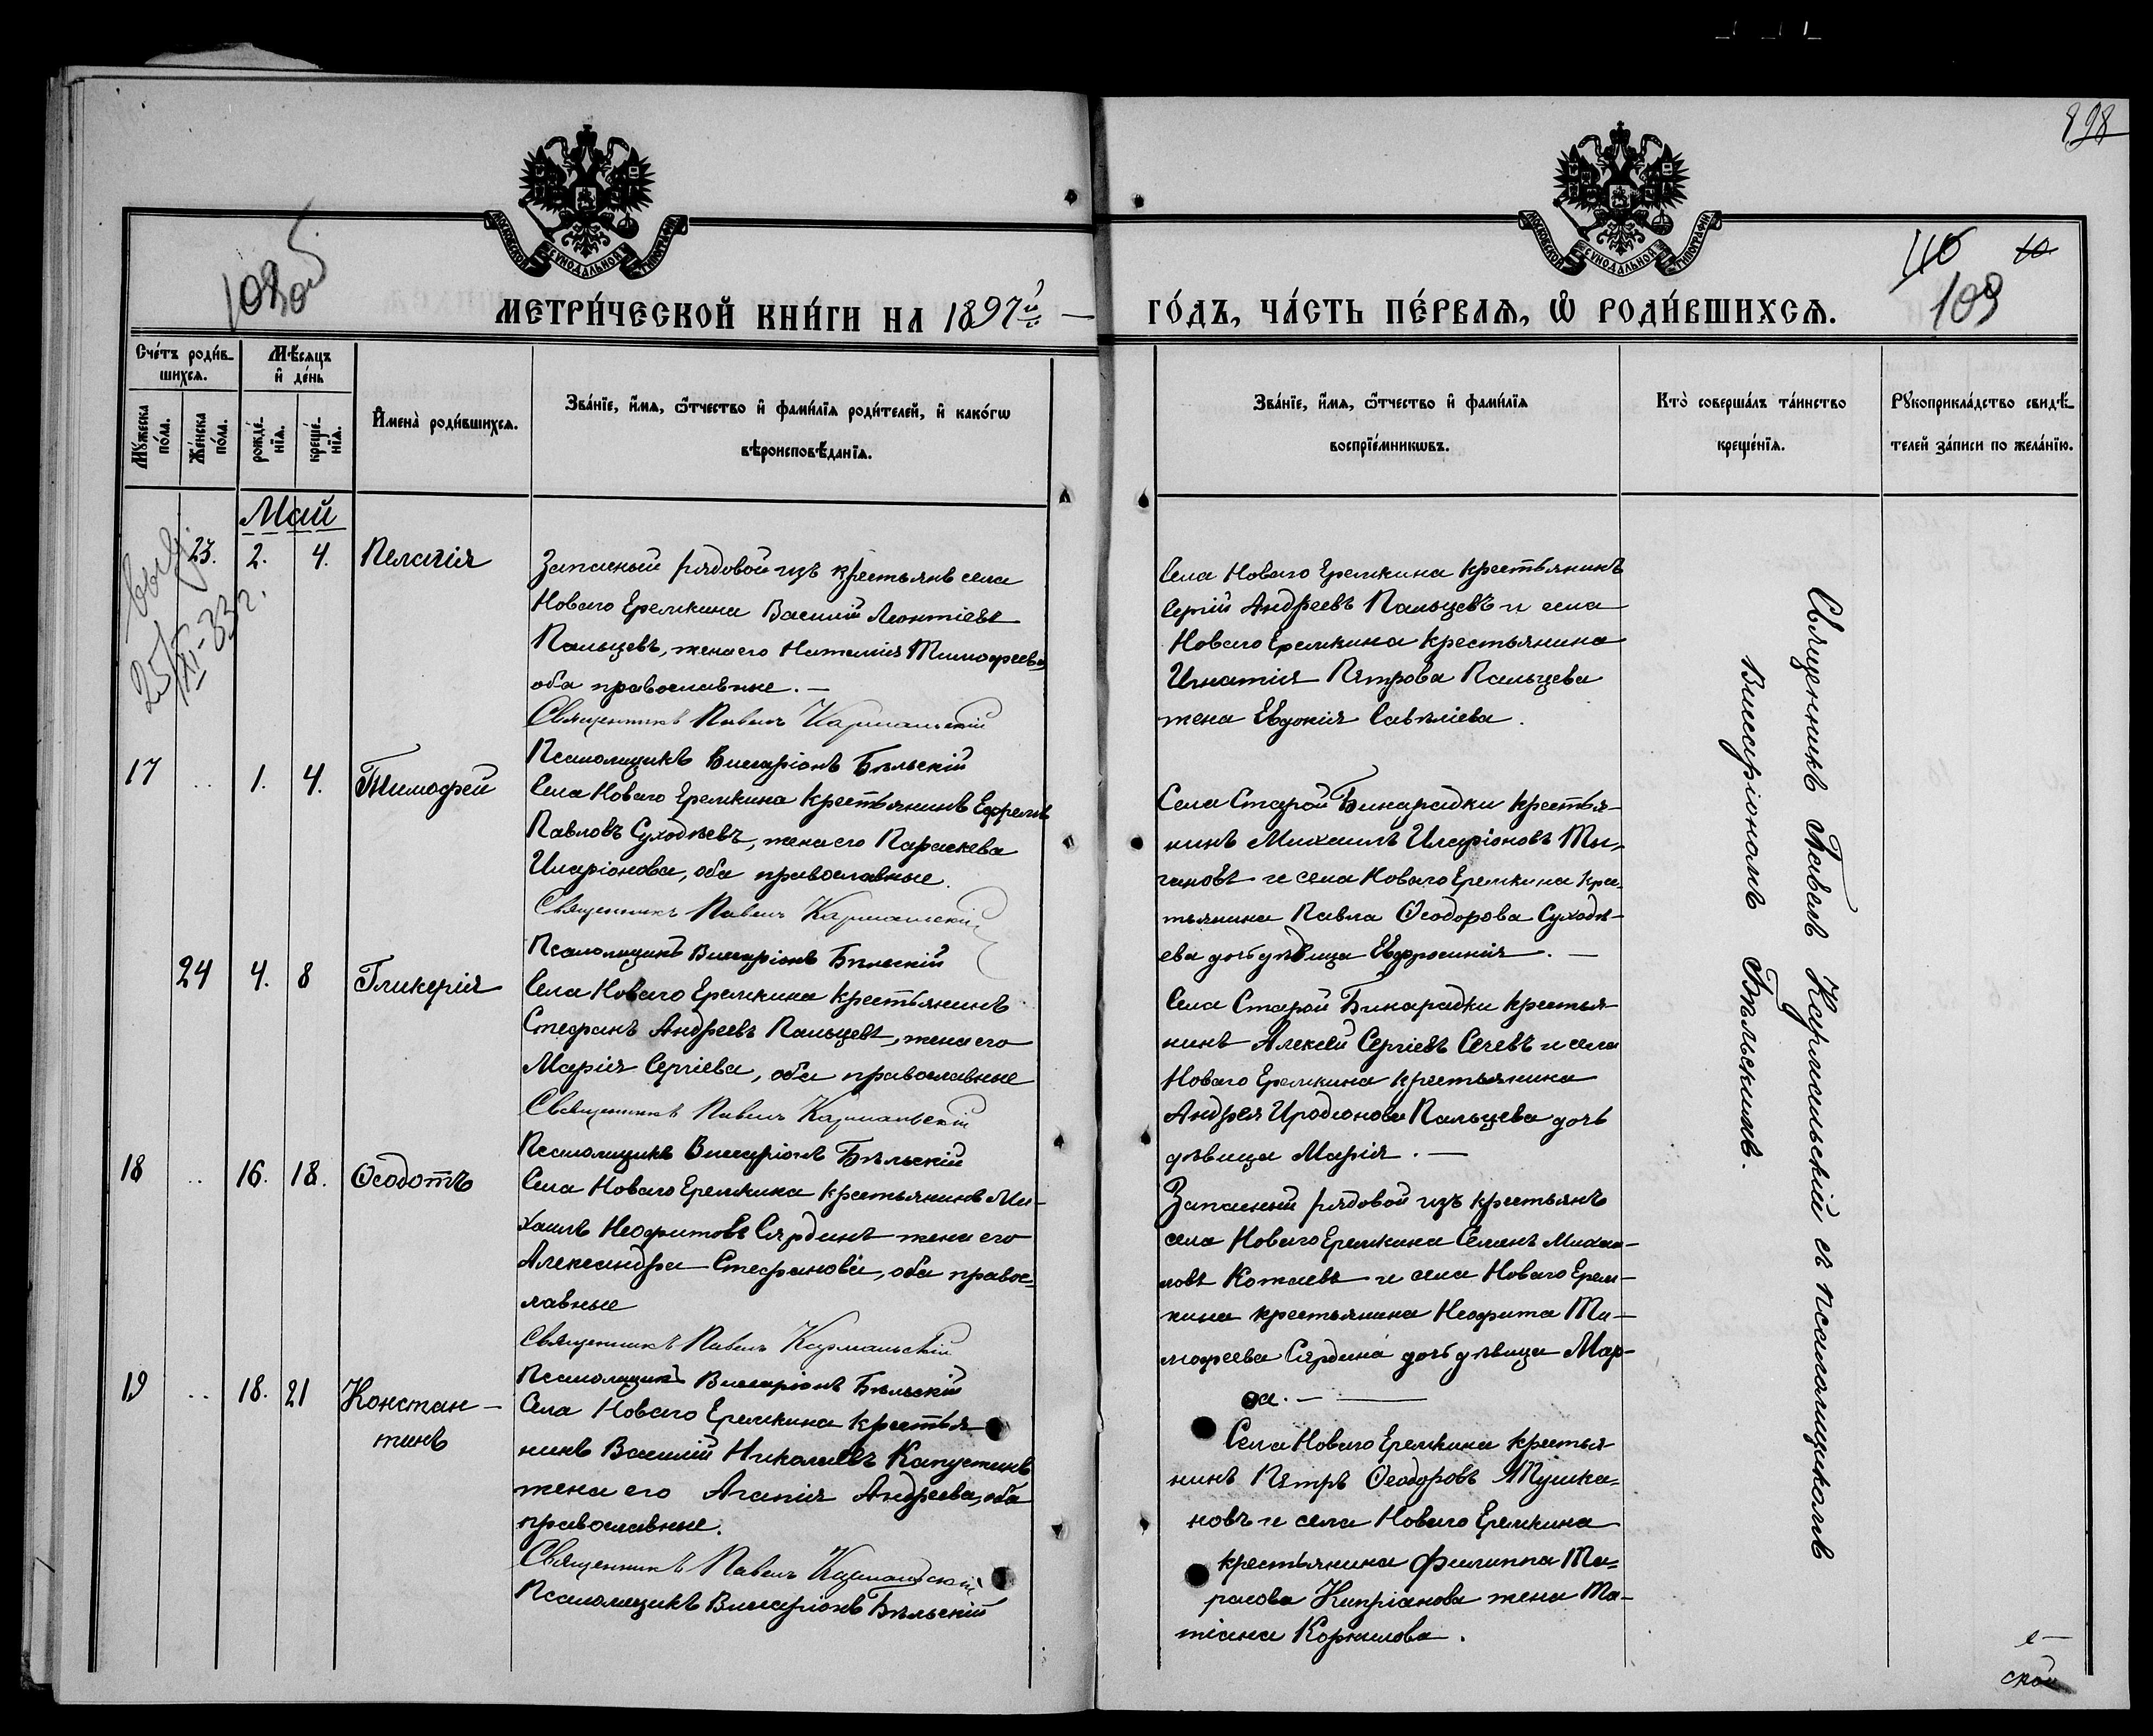 898
108об
МОСКОВСКОЙ СѴНОДАЛЬНОЙ ТИПОГРАФІИ
МОСКОВСКОЙ СѴНОДАЛЬНОЙ ТИПОГРАФІИ
116
10
109
МЕТРИ́ЧЕСКОЙ КНИ́ГИ НА 1897й
ГО́ДЪ, ЧА́СТЬ ПЕ́РВАѦ, Ѽ РОДИ́ВШИХСѦ.
Сче́тъ роди́в-
шихсѧ.
Мꙋ́жеска по́ла.
Же́нска по́ла.
Мѣ́сѧцъ
и҆ де́нь
рожде́-
нїѧ.
креще́-
нїѧ.
И҆мена̀ роди́вшихсѧ.
Зва́нїе, и҆́мѧ, ѻ҆́тчество и҆ фами́лїѧ роди́телей, и҆ како́гѡ
вѣроисповѣ́данїѧ.
Зва́нїе, и҆́мѧ, ѻ҆́тчество и҆ фами́лїѧ
воспрїе́мникѡвъ.
Кто̀ соверша́лъ та́инство
креще́нїѧ.
Рꙋкоприкла́дство свидѣ́-
телей за́писи по жела́нїю.
Май
выд.
25/XI-33г.
23. 2. 4. Пелагія
Запасный рядовой изъ крестьянъ села
Новаго Еремкина Василій Леонтіевъ
Пальцевъ, жена его Наталія Тимофеева
оба православные. –
Священникъ Павелъ Кармальскій
Псаломщикъ Виссаріонъ Бѣльскій
Села Новаго Еремкина крестьянинъ
Сергій Андреевъ Пальцевъ и села
Новаго Еремкина крестьянина
Игнатія Петрова Пальцева
жена Евдокія Савеліева.
17 .. 1. 4. Тимофей
Села Новаго Еремкина крестьянинъ Ефремъ
Павловъ Суходѣевъ, жена его Параскева
Иларіонова, оба православные.
Священникъ Павелъ Кармальскій
Псаломщикъ Виссаріонъ Бѣльскій
Села Старой Бинарадки крестья-
нинъ Михаилъ Иларіоновъ Цы-
гановъ и села Новаго Еремкина кре-
стьянина Павла Ѳеодорова Суходѣ-
ева дочь дѣвица Евфросинія. –
24 4. 8 Гликерія
Села Новаго Еремкина крестьянинъ
Стефанъ Андреевъ Пальцевъ, жена его
Марія Сергіева, оба православные
Священникъ Павелъ Кармальскій
Псаломщикъ Виссаріонъ Бѣльскій
Села Старой Бинарадки крестья-
нинъ Алексей Сергіевъ Сечевъ и села
Новаго Еремкина крестьянина
Андрея Иродіонова Пальцева дочь
дѣвица Марія. –
18 .. 16. 18. Ѳеодотъ
Села Новаго Еремкина крестьянинъ Ми-
хаилъ Неофитовъ Сярдинъ жена его
Александра Стефанова, оба правос-
лавные
Священникъ Павелъ Кармальскій
Псаломщикъ Виссаріонъ Бѣльскій
Запасный рядовой изъ крестьянъ
села Новаго Еремкина Семенъ Михаи-
ловъ Котаевъ и села Новаго Ерем-
кина крестьянина Неофита Ти-
мофеева Сярдина дочь дѣвица Мар-
ѳа. –
19 .. 18. 21 Констан-
тинъ
Села Новаго Еремкина крестья-
нинъ Василій Николаевъ Капустинъ
жена его Агапія Андреева, оба
православные.
Священникъ Павелъ Кармальскій
Псаломщикъ Виссаріонъ Бѣльскій
Села Новаго Еремкина крестья-
нинъ Петръ Ѳеодоровъ Тушка-
новъ и села Новаго Еремкина
крестьянина Филиппа Та-
расова Кипріанова жена Та-
тіана Корнилова.
Священникъ Павелъ Кармальскій съ псаломщикомъ
Виссаріономъ Бѣльскимъ.